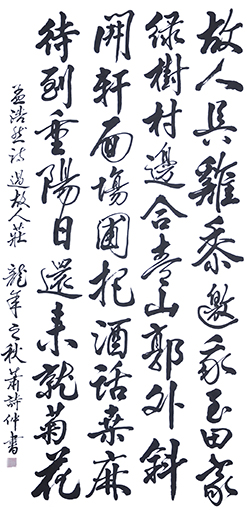 故人具雞黍邀我至田家
綠樹村邊合青山郭外斜
開軒面場圃把酒話桑麻
待到重陽日還來就菊花
孟浩然詩過故人莊 龍年之秋蕭詩仲書